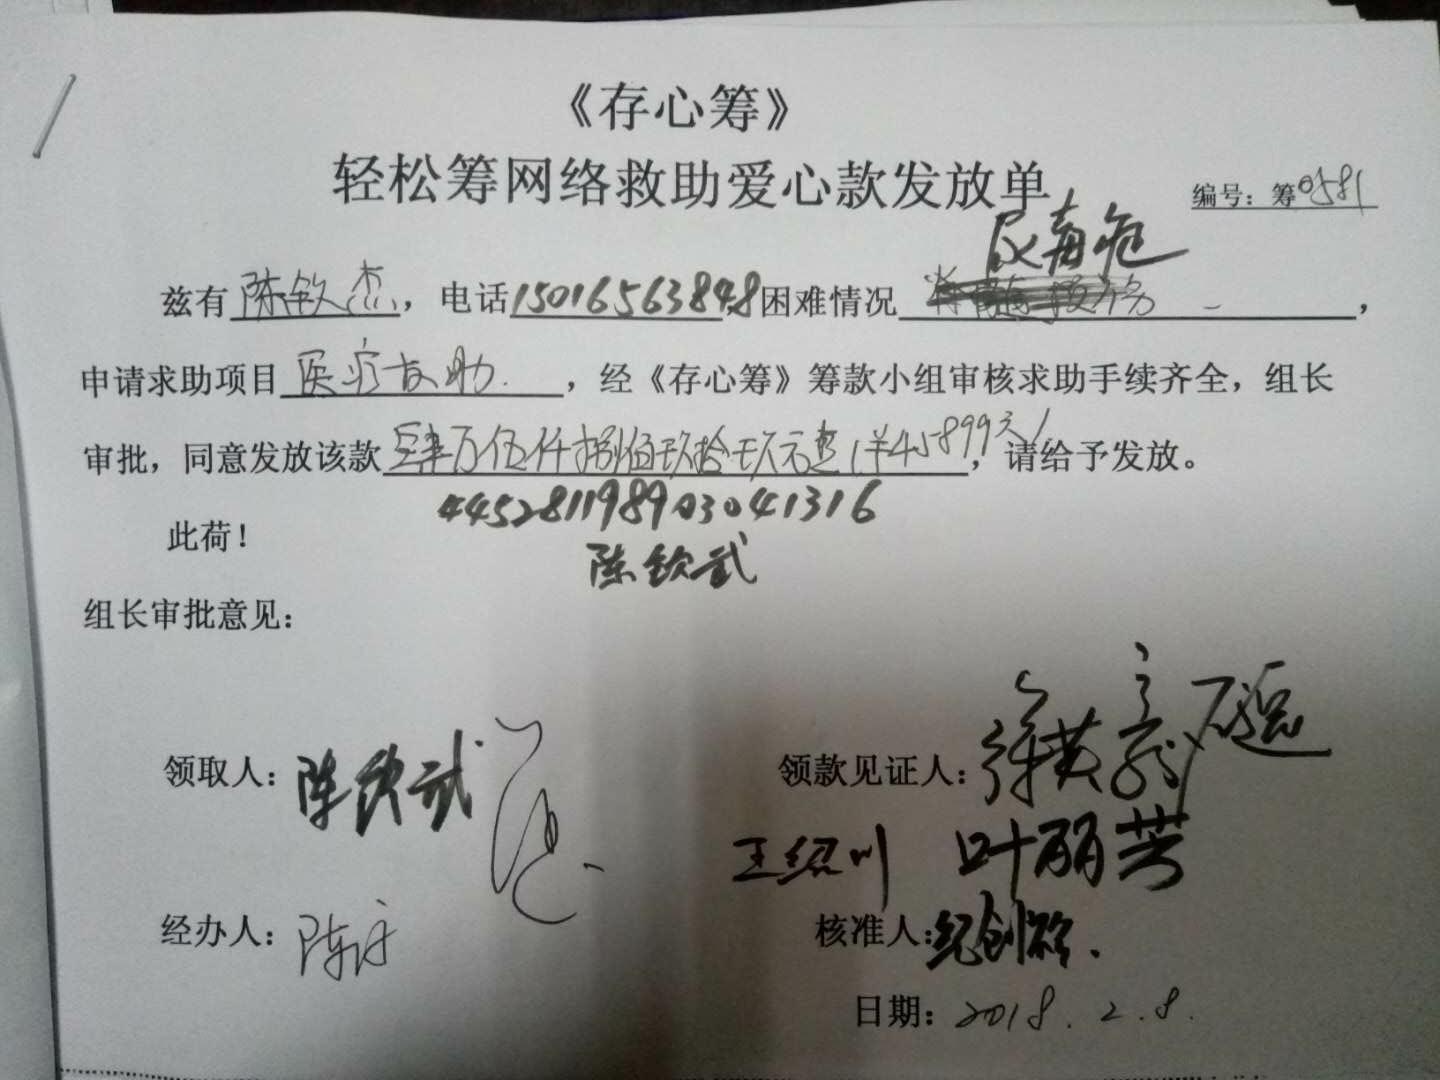 《存心筹》
轻松筹网络救助爱心款发放单
编号：筹0581
尿毒症
兹有陈钦杰，电话15016563848困难情况，
申请求助项目医疗救助，经《存心筹》筹款小组审核求助手续齐全，组长
审批，同意发放该款肆万伍仟捌佰玖拾玖元整（¥45899元），请给予发放。
445281198903041316
此荷！
陈钦武
组长审批意见：
领取人：陈钦武
领款见证人：徐英
王绍川 叶丽芳
经办人：陈
核准人：纪创
日期：2018.2.8.